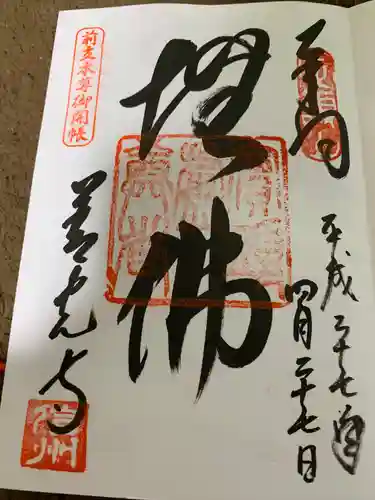 奉拝
平成二十七年
四月二十七日
撫佛
前立本尊御開帳
善光寺
信州